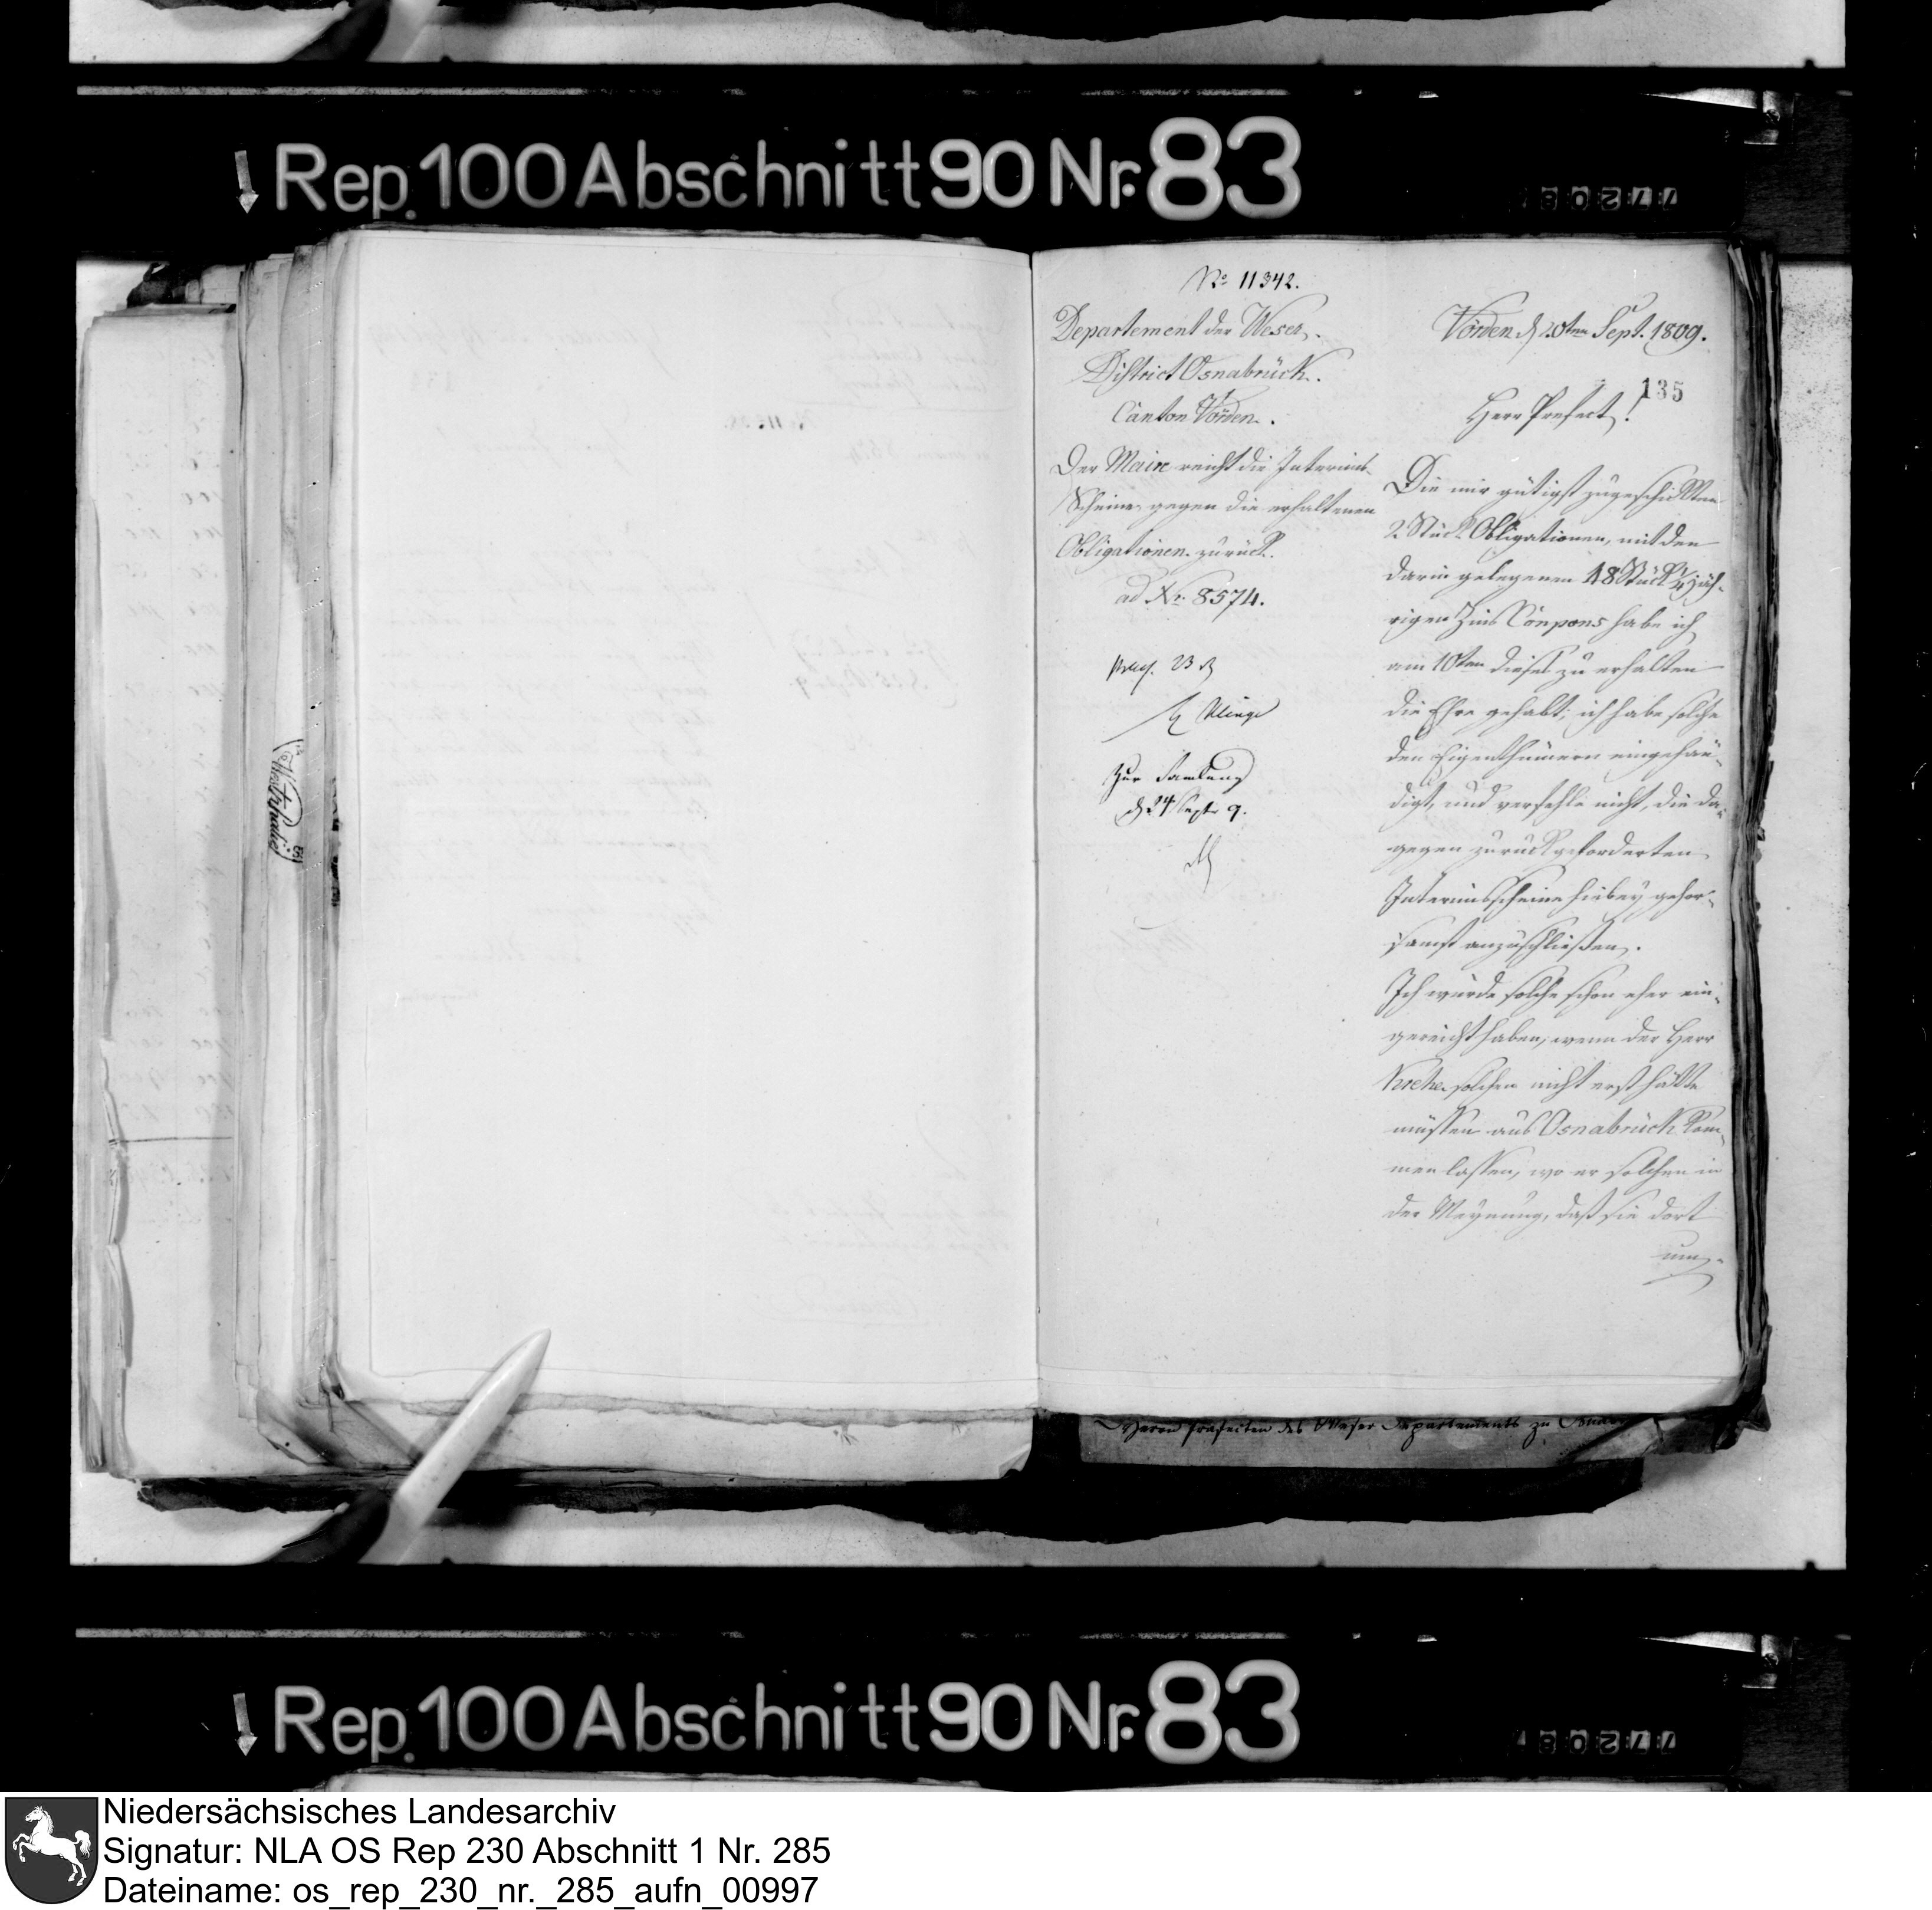 Rep. 100 Abschnitt 90 Nr. 83
No 11342.
Departement der Weser.
District Osnabrück.
Canton Vörden.
Der Maire reicht die Interims-
Scheine gegen die erhaltenen
Obligationen zurück.
ad Nr. 8574.
praes. 23
Klinge
Zur Samlung
d 24 Sept 9.
Vörden d 20ten Sept. 1809.
135
Herr Prefect!
Die mir gütigst zugeschickten
2 Stück Obligationen, mit den
darin gelegenen 18 Stück 1/4 jäh-
rigen Zins Coupons habe ich
am 10ten dieses zu erhalten
die Ehre gehabt; ich habe solche
den Eigenthümern eingehän-
digt, und verfehle nicht, die da-
gegen zurückgeforderten
Interimsscheine hiebey gehor-
samst anzuschließen.
Ich würde solche schon eher ein-
gereicht haben, wenn der Herr
solchen nicht erst hätte
müssen aus Osnabrück kom-
men lassen, wo er solchen in
der Meynung, daß sie dort
um-
Westphalie
Herrn Präfecten des Weser Departements zu
Rep. 100 Abschnitt 90 Nr. 83
Niedersächsisches Landesarchiv
Signatur: NLA OS Rep 230 Abschnitt 1 Nr. 285
Dateiname: os_rep_230_nr._285_aufn_00997